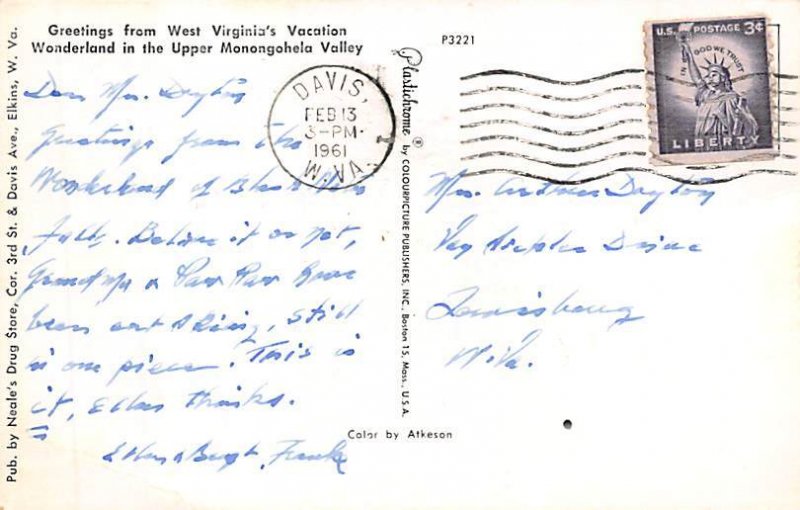 Greetings from West Virginia's Vacation
Wonderland in the Upper Monongohela Valley
Dear Mr. Dayton
Greetings from the
Wonderland of Black Water
Falls. Believe it or not,
Grandma & Paw Paw have
been out skiing, still
in one piece. This is
it, Ellen thinks.
Frank
Pub. by Neale's Drug Store, Cor. 3rd St. & Davis Ave., Elkins, W. Va.
Plastichrome ® by COLOURPICTURE PUBLISHERS, INC., Boston 15, Mass., U.S.A.
Color by Atkeson
P3221
DAVIS,
FEB 13
3-PM
1961
W. VA.
U.S. POSTAGE 3¢
IN GOD WE TRUST
LIBERTY
Mr. Arthur Dayton
Drive
Lewisburg
W. Va.